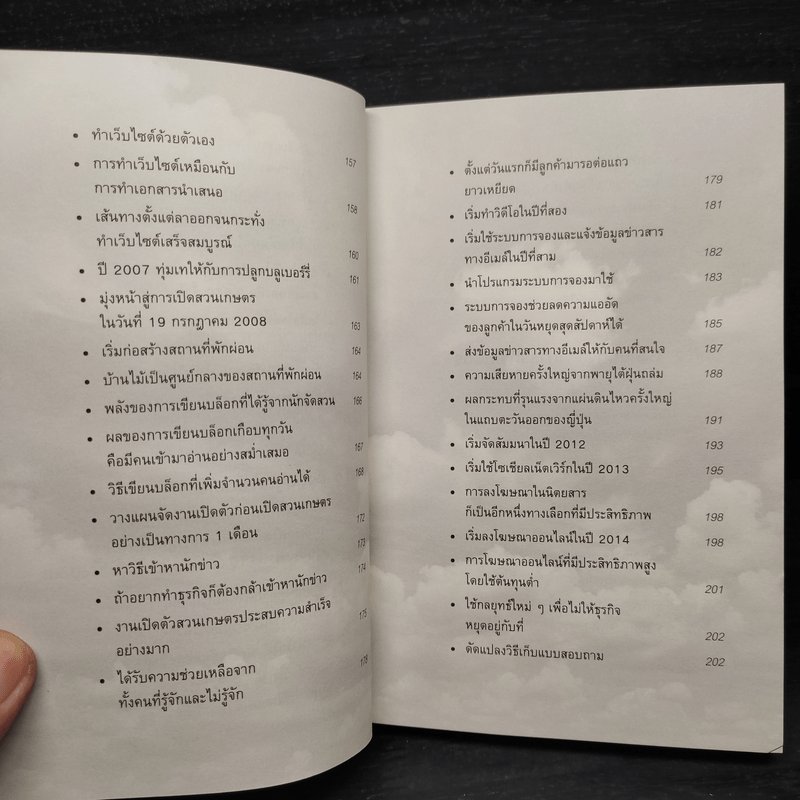 • ทำเว็บไซต์ด้วยตัวเอง 157
• การทำเว็บไซต์เหมือนกับ
การทำเอกสารนำเสนอ 158
• เส้นทางตั้งแต่ลาออกจนกระทั่ง
ทำเว็บไซต์เสร็จสมบูรณ์ 160
• ปี 2007 ทุ่มเทให้กับการปลูกบลูเบอร์รี่ 161
• มุ่งหน้าสู่การเปิดสวนเกษตร
ในวันที่ 19 กรกฎาคม 2008 163
• เริ่มก่อสร้างสถานที่พักผ่อน 164
• บ้านไม้เป็นศูนย์กลางของสถานที่พักผ่อน 164
• พลังของการเขียนบล็อกที่ได้รู้จากนักจัดสวน 166
• ผลของการเขียนบล็อกเกือบทุกวัน
คือมีคนเข้ามาอ่านอย่างสม่ำเสมอ 167
• วิธีเขียนบล็อกที่เพิ่มจำนวนคนอ่านได้ 168
• วางแผนจัดงานเปิดตัวก่อนเปิดสวนเกษตร
อย่างเป็นทางการ 1 เดือน 172
• หาวิธีเข้าหานักข่าว 173
• ถ้าอยากทำธุรกิจก็ต้องกล้าเข้าหานักข่าว 174
• งานเปิดตัวสวนเกษตรประสบความสำเร็จ
อย่างมาก 175
• ได้รับความช่วยเหลือจาก
ทั้งคนที่รู้จักและไม่รู้จัก 178
• ตั้งแต่วันแรกก็มีลูกค้ามารอต่อแถว
ยาวเหยียด 179
• เริ่มทำวิดีโอในปีที่สอง 181
• เริ่มใช้ระบบการจองและแจ้งข้อมูลข่าวสาร
ทางอีเมล์ในปีที่สาม 182
• นำโปรแกรมระบบการจองมาใช้ 183
• ระบบการจองช่วยลดความแออัด
ของลูกค้าในวันหยุดสุดสัปดาห์ได้ 185
• ส่งข้อมูลข่าวสารทางอีเมล์ให้กับคนที่สนใจ 187
• ความเสียหายครั้งใหญ่จากพายุไต้ฝุ่นถล่ม 188
• ผลกระทบที่รุนแรงจากแผ่นดินไหวครั้งใหญ่
ในแถบตะวันออกของญี่ปุ่น 191
• เริ่มจัดสัมมนาในปี 2012 193
• เริ่มใช้โซเชียลเน็ตเวิร์กในปี 2013 195
• การลงโฆษณาในนิตยสาร
ก็เป็นอีกหนึ่งทางเลือกที่มีประสิทธิภาพ 198
• เริ่มลงโฆษณาออนไลน์ในปี 2014 198
• การโฆษณาออนไลน์ที่มีประสิทธิภาพสูง
โดยใช้ต้นทุนต่ำ 201
• ใช้กลยุทธ์ใหม่ ๆ เพื่อไม่ให้ธุรกิจ
หยุดอยู่กับที่ 202
• ดัดแปลงวิธีเก็บแบบสอบถาม 202